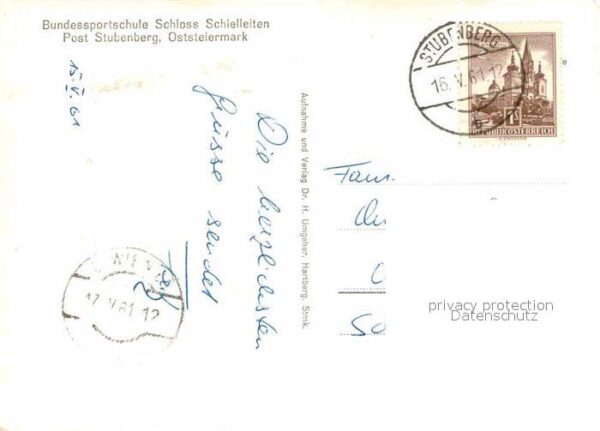 Bundessportschule Schloss Schielleiten
Post Stubenberg, Oststeiermark
15.V.61
Die herzlichsten
Grüsse sendet
Aufnahme und Verlag Dr. H. Umgeher, Hartberg, Stmk.
STUBENBERG
16.V.61.12
REPUBLIK ÖSTERREICH
Fam.
WIEN
17.V.61 12
privacy protection
Datenschutz